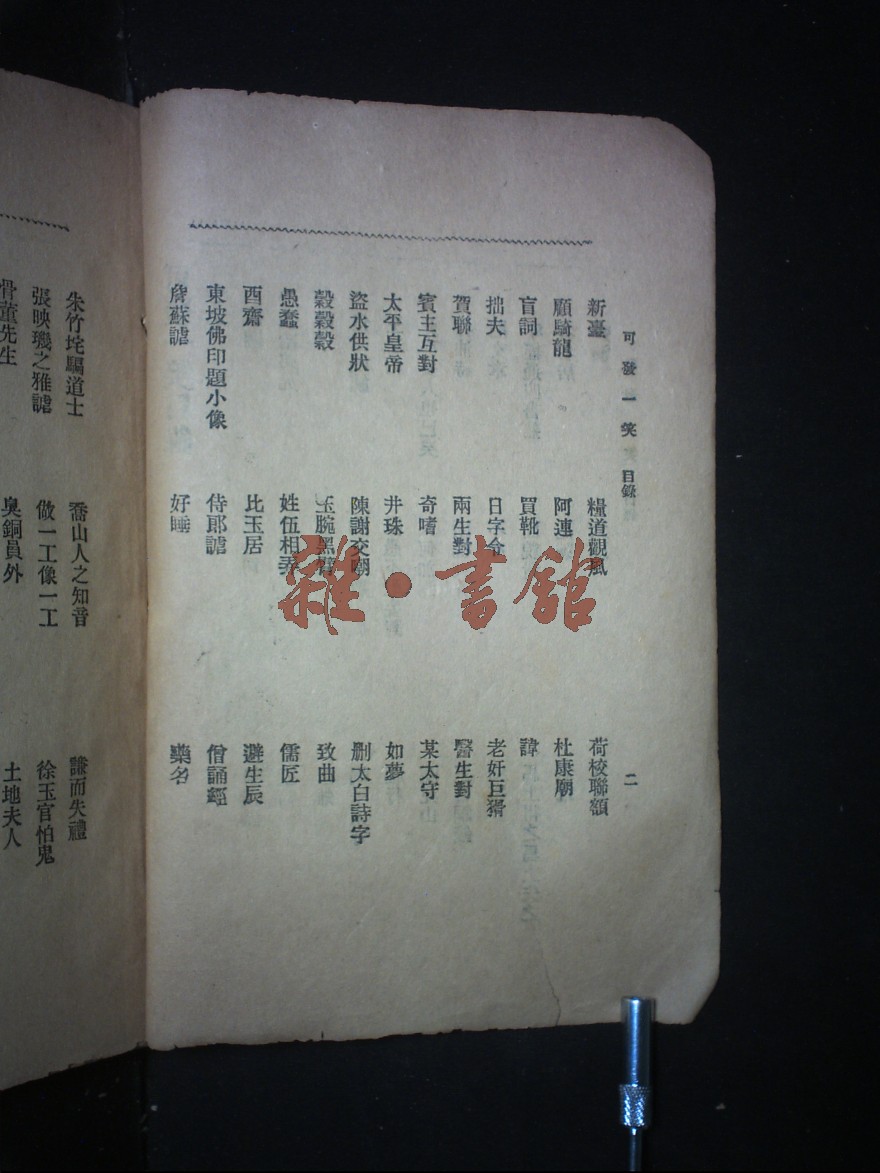 可發一笑 目錄 二
新臺 糧道觀風 荷校聯額
顧騎龍 阿連 杜康廟
盲詞 買靴 諱
拙夫 日字令 老奸巨猾
賀聯 兩生對 醫生對
賓主互對 奇嗜 某太守
太平皇帝 井珠 如夢
盜水供狀 陳謝交嘲 刪太白詩字
穀穀穀 玉腕黑臂 致曲
愚蠢 姓伍相弄 儒匠
酉齋 比玉居 避生辰
東坡佛印題小像 侍郎謔 僧誦經
詹蘇謔 好睡 藥名
朱竹垞騙道士 喬山人之知音 謙而失禮
張映璣之雅謔 做一工像一工 徐玉官怕鬼
骨董先生 臭銅員外 土地夫人
雜·書館